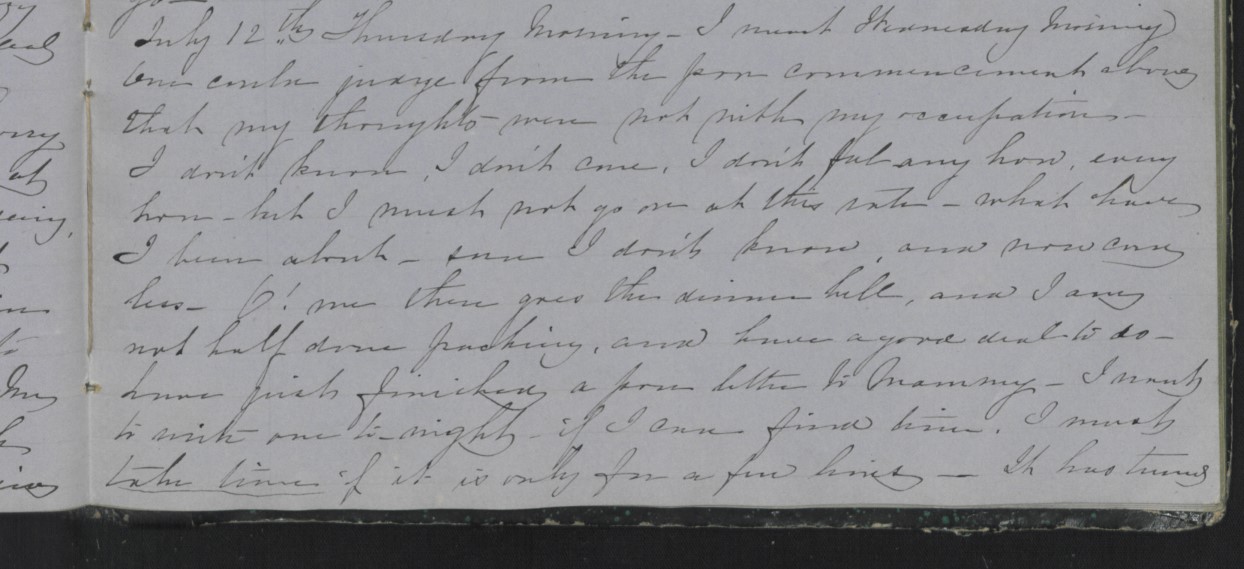 go
July 12th Thursday Morning - I meant Wednesday Morning
One could judge from the poor commencement above
that my thoughts were not with my occupation -
I don't know, I don't care, I don't feel any how, every
how - but I must not go on at this rate - what have
I been about - sure I don't know, and now care
less - O! me there goes the dinner bell, and I am
not half done packing, and have a good deal to do -
have just finished a poor letter to Mammy - I must
to write one to-night - if I can find time. I must
take time if it is only for a few lines - It has turned